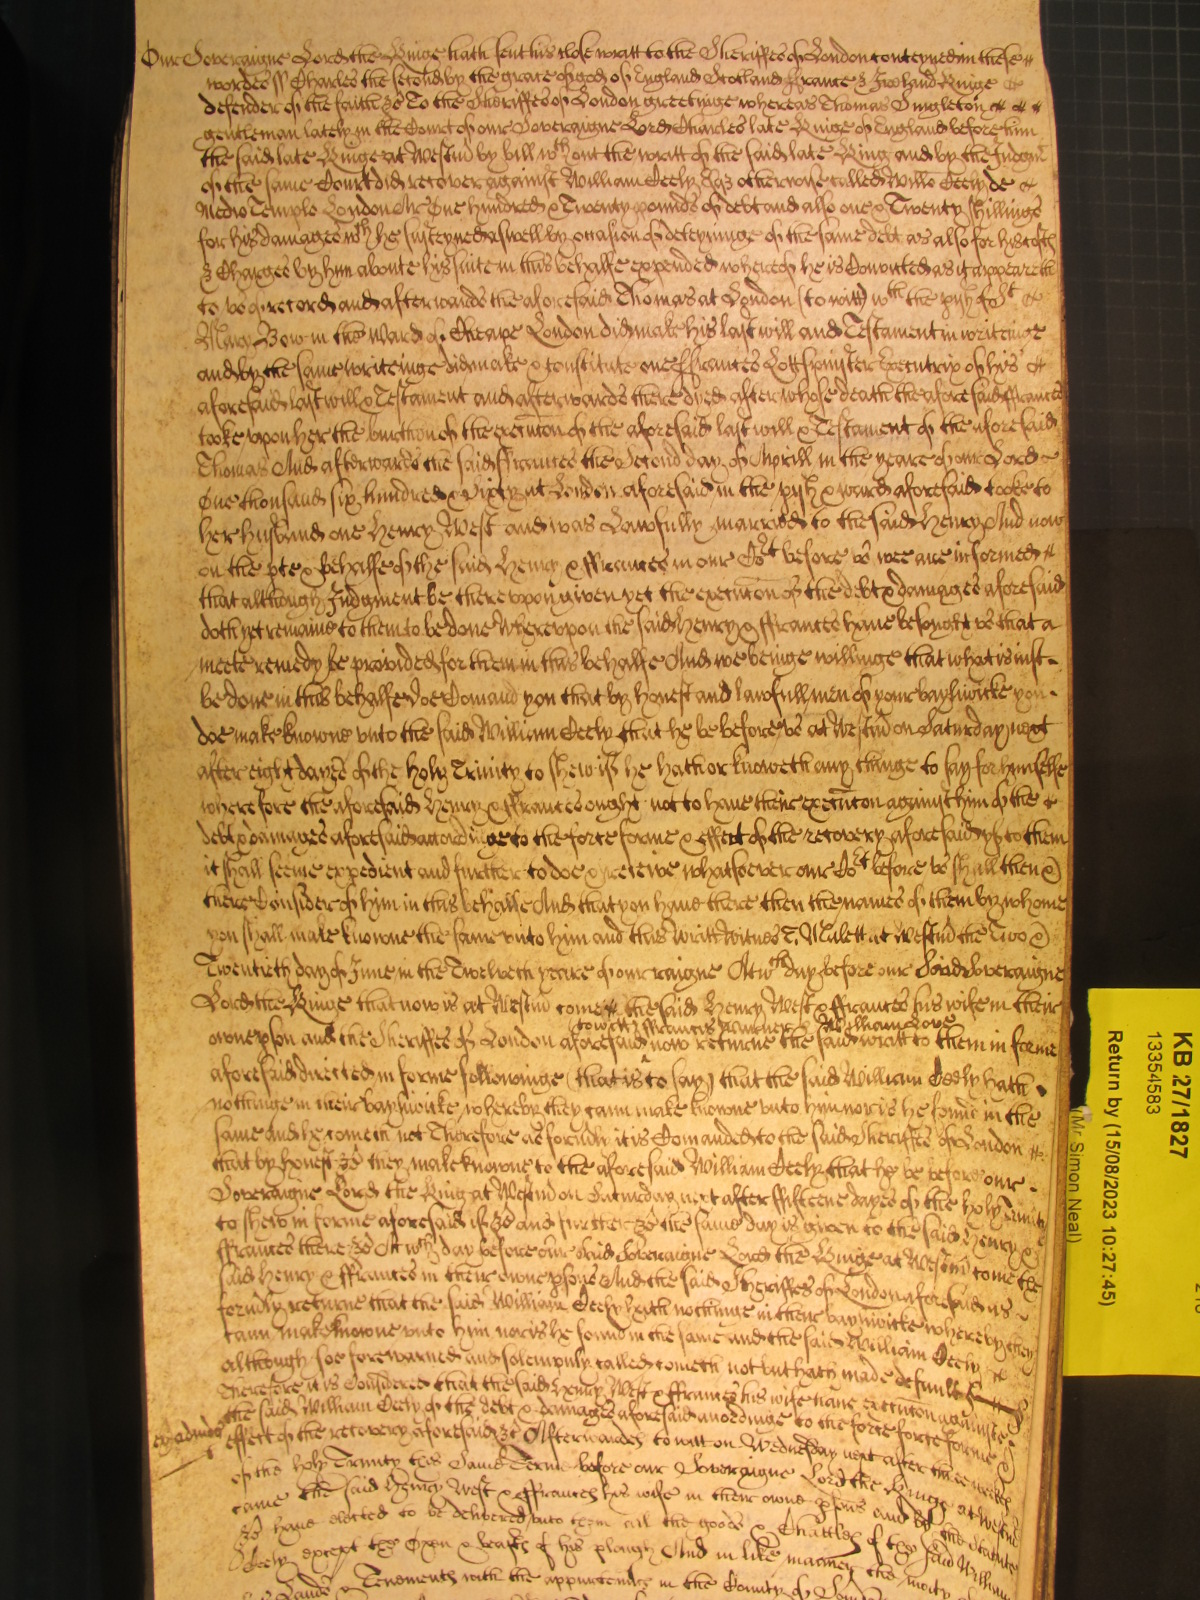 Our Soveraigne Lord the Kinge hath sent his close writt to the Sheriffes of London conteyned in these
wordes ss Charles the second by the grace of god of England Scotland France & Ireland Kinge
defender of the faith &c To the Sheriffes of London greetinge whereas Thomas Singleton
gentleman lately in the Court of our Soveraigne Lord Charles late Kinge of England before him
the said late Kinge at Westm by bill wthout the writt of the said late King and by the Judgmt
of the same Court did recover against William Ceely Esq otherwise called Willm Ceely de
Medio Temple London Ar One hundred & Twenty pounds of debt and also one & Twenty shillinge
for his damages wch he susteyned aswell by occasion of deteyninge of the same debt as also for his costs
& Charges by him aboute his suite in this behalfe expended whereof he is Convicted as it appeareth
to us of record and afterwards the aforesaid Thomas at London (to witt) in the pish of St
Mary Bow in the ward of Cheape London did make his last will and Testament in writeinge
and by the same writeinge did make & constitute one Frances Lott spinster Executrix of his
aforesaid last will & Testament and afterwardes there dyed after whose death the aforesaid ffrances
tooke upon her the burthen of the execucon of the aforesaid last will & Testament of the aforesaid
Thomas And afterwards the said ffrances the Second day of Aprill in the yeare of our Lord
One thousand six hundred & Sixty at London aforesaid in the pish & ward aforesaid tooke to
her husband one Henry West and was Lawfully married to the said Henry And now
on the pte & behalfe of the said Henry & ffrances in our Cort before us wee are informed
that although Judgment be thereupon given yet the execucon of the debt & damages aforesaid
doth yet remaine to them to be done Whereupon the said Henry & ffrances have besought us that a
meete remedy be provided for them in this behalfe And we beinge willinge that what is just
be done in this behalfe doe Comand you that by honest and lawfull men of your bayliwicke you
doe make knowne unto the said William Ceely that he be before us at Westm on Saturday next
after eight dayes of the holy Trinity to shew if he hath or knoweth any thinge to say for himselfe
wherefore the aforesaid Henry & ffrances ought not to have their execucon against him of the
debt & damages aforesaid accordinge to the force forme & effect of the recovery aforesaid if to them
it shall seeme expedient and further to doe & receive whatsoever our Cort before us shall then
there Consider of him in this behalfe And that you have there then the names of them by whome
you shall make knowne the same unto him and this writt Witnes T. Malett at Westm the Two
Twentieth day of June in the Twelveth yeare of our raigne Att wch day before our said Soveraigne
Lord the Kinge that now is at Westm come the said Henry West & ffrances his wife in their
to witt ffrancis Warner & William Love
owne pson and the Sheriffes of London aforesaid now returne the said writt to them in forme
aforesaid directed in forme followinge (that is to say) that the said William Ceely hath
nothinge in their bayliwicke whereby they cann make knowne unto him nor is he found in the
same And he cometh not Therefore as formly it is Comanded to the said Sheriffes of London
that by honest &c they make knowne to the aforesaid William Ceely that he be before our
Soveraigne Lord the King at Westm on Saturday next after ffifteene dayes of the holy Trinity
to shew in forme aforesaid if &c and further &c the same day is given to the said Henry &
ffrances there &c At wch day before our said Soveraigne Lord the Kinge at Westm come the
said Henry & ffrances in their owne psons And the said Sheriffes of London aforesaid as
formly returne that the said William Ceely hath nothinge in their bayliwicke whereby they
cann make knowne unto him nor is he found in the same and the said William Ceely
although soe forewarned and solempnly called cometh not but hath made default
Therefore it is Considered that the said Henry West & ffrances his wife have execucon against
the said William Ceely of the debt & damages aforesaid accordinge to the force forme
effect of the recovery aforesaid &c Afterwardes to witt on Wednesday next after three weekes
of the holy Trinity this same Terme before our Soveraigne Lord the Kinge at Westm
came the said Henry West & ffrances his wife in their owne psons and by the statute
&c have elected to be delivered unto them all the goods & Chattles of the said William
Ceely except the Oxen & beasts of his plough And in like manner the moity
Lands & Tenements with the appurtencs in the County of
KB 27/1827
13354583
Return by (15/08/2023 10:27:45)
(Mr Simon Neal)